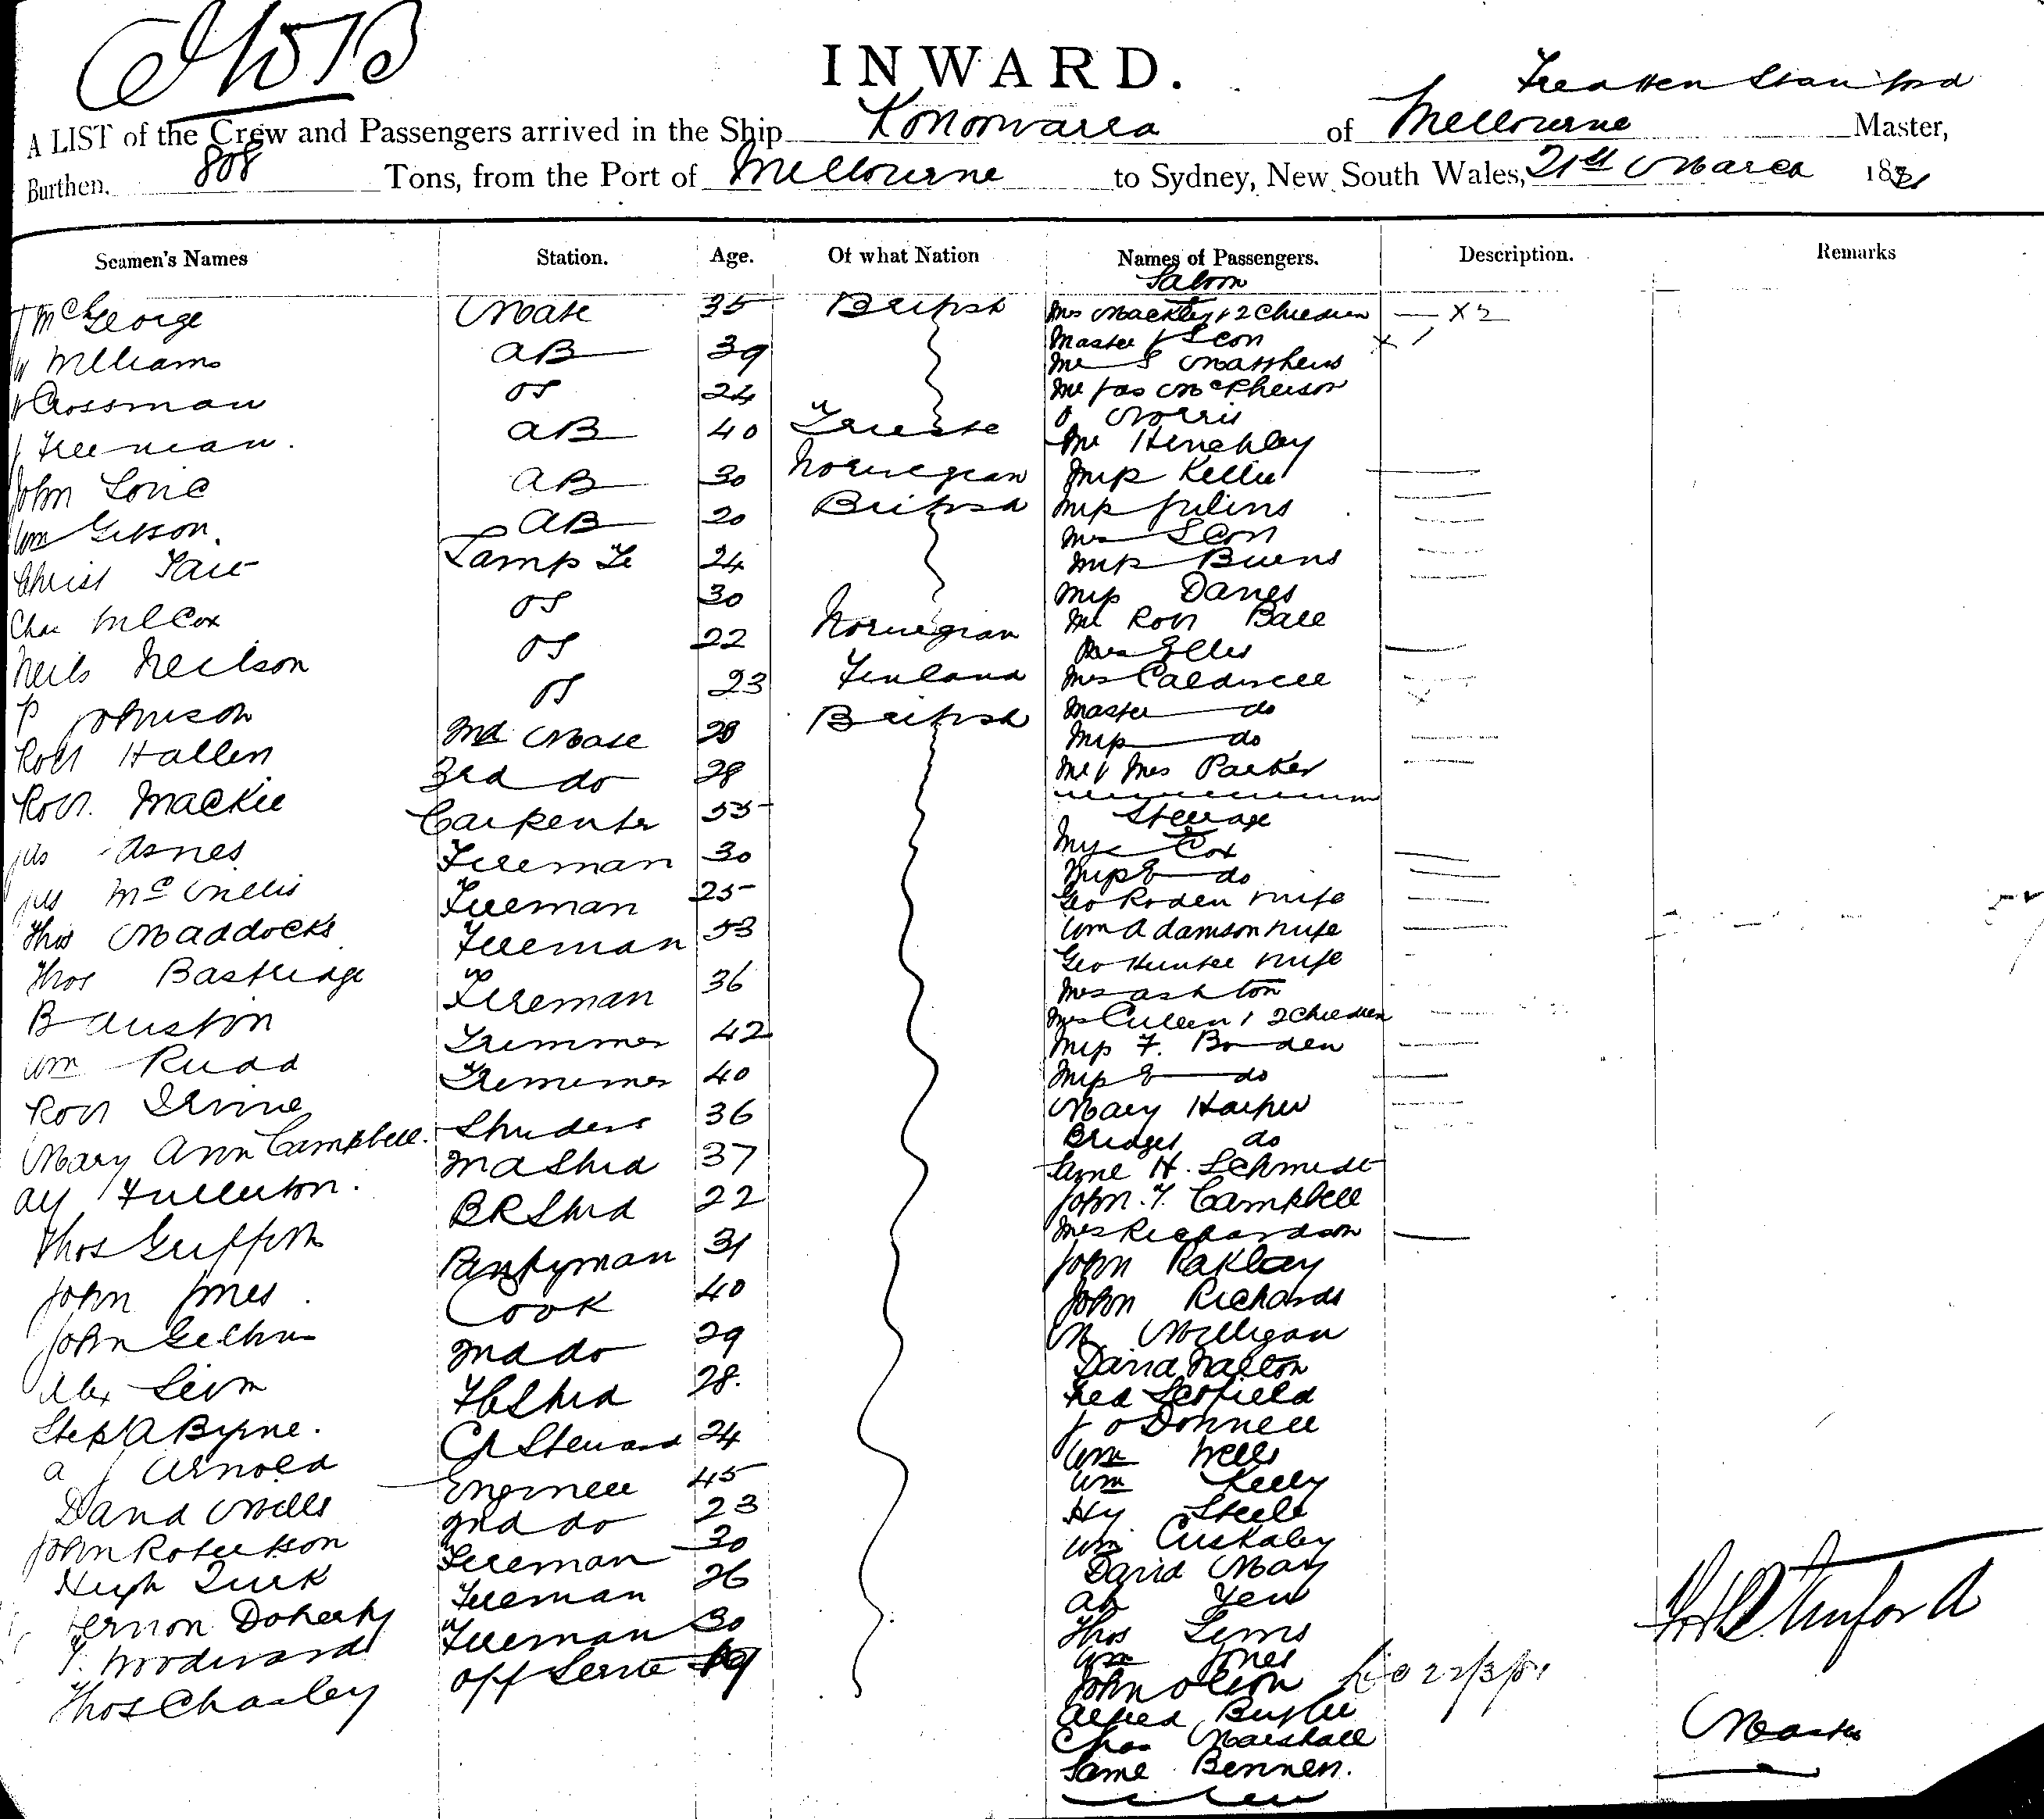 INWARD.
A LIST of the Crew and Passengers arrived in the Ship Konoowarra of Melbourne Master,
Burthen, 808 Tons, from the Port of Melbourne to Sydney, New South Wales, 21st March 1881
Seamen's Names Station. Age. Of what Nation Names of Passengers. Description. Remarks
Saloon
George Mate 35 British Mrs Mackley & 2 Children — X 2
Williams AB 39 Master
Crossman OS 24 Mr S Matthews
Freeman. AB 40 Trieste Mr Jas McPherson
John AB 30 Norwegian Norris
Wm Gibson. AB 20 British Mr Hinchley
Christ Tait Lamp Tr 24 Miss Kellie
Chas Wilcox OS 30 Miss Julius
Neils Neilson OS 22 Norwegian Mrs
P Johnson OS 23 Finland Miss Burns
Robt Hallen 2nd Mate 28 British Miss Davies
Robt. Mackie 3rd do 28 Mr Robt Ball
Jas Carpenter 55 Mrs Ellis
Jas Fireman 30 Mrs Caldwell
Thos Maddocks Fireman 25 Master do
Thos Bastridge Fireman 53 Miss do
B Austin Fireman 36 Mr & Mrs Parker
Wm Rudd Trimmer 42 Steerage
Robt Irvine Trimmer 40 Cox
Mary Ann Campbell. 36 Miss E do
Alf Fullerton. 2nd Stwd 37 Geo Roden & wife
Thos Griffith BR Stwd 22 Wm Adamson & wife
John Jones Pantryman 31 Geo Hunter & wife
John Cook 40 Mrs Ashton
Alex 2nd do 29 Mrs Cullen & 2 Children
Step A Byrne. Stwd 28. Miss F. Bowden
A J Arnold Ch Steward 24 Miss E do
David Mills Engineer 45 Mary Harper
John Robertson 2nd do 23 Bridget do
Hugh Quirk Fireman 30 H. Schmidt
Vernon Doherty Fireman 26 John. T. Campbell
T. Woodward Fireman 30 Mrs Richardson
Thos Charley 19 John
John Richards
M Milligan
David Walton
Fred Scofield
J O Donnell
Wm Wells
Wm Kelly
Hy Steele
Wm
David May
Ah Yew
Thos
Wm Jones
John Olson 22/3/81
Alfred Butler
Chas Marshall Master
Bennett.